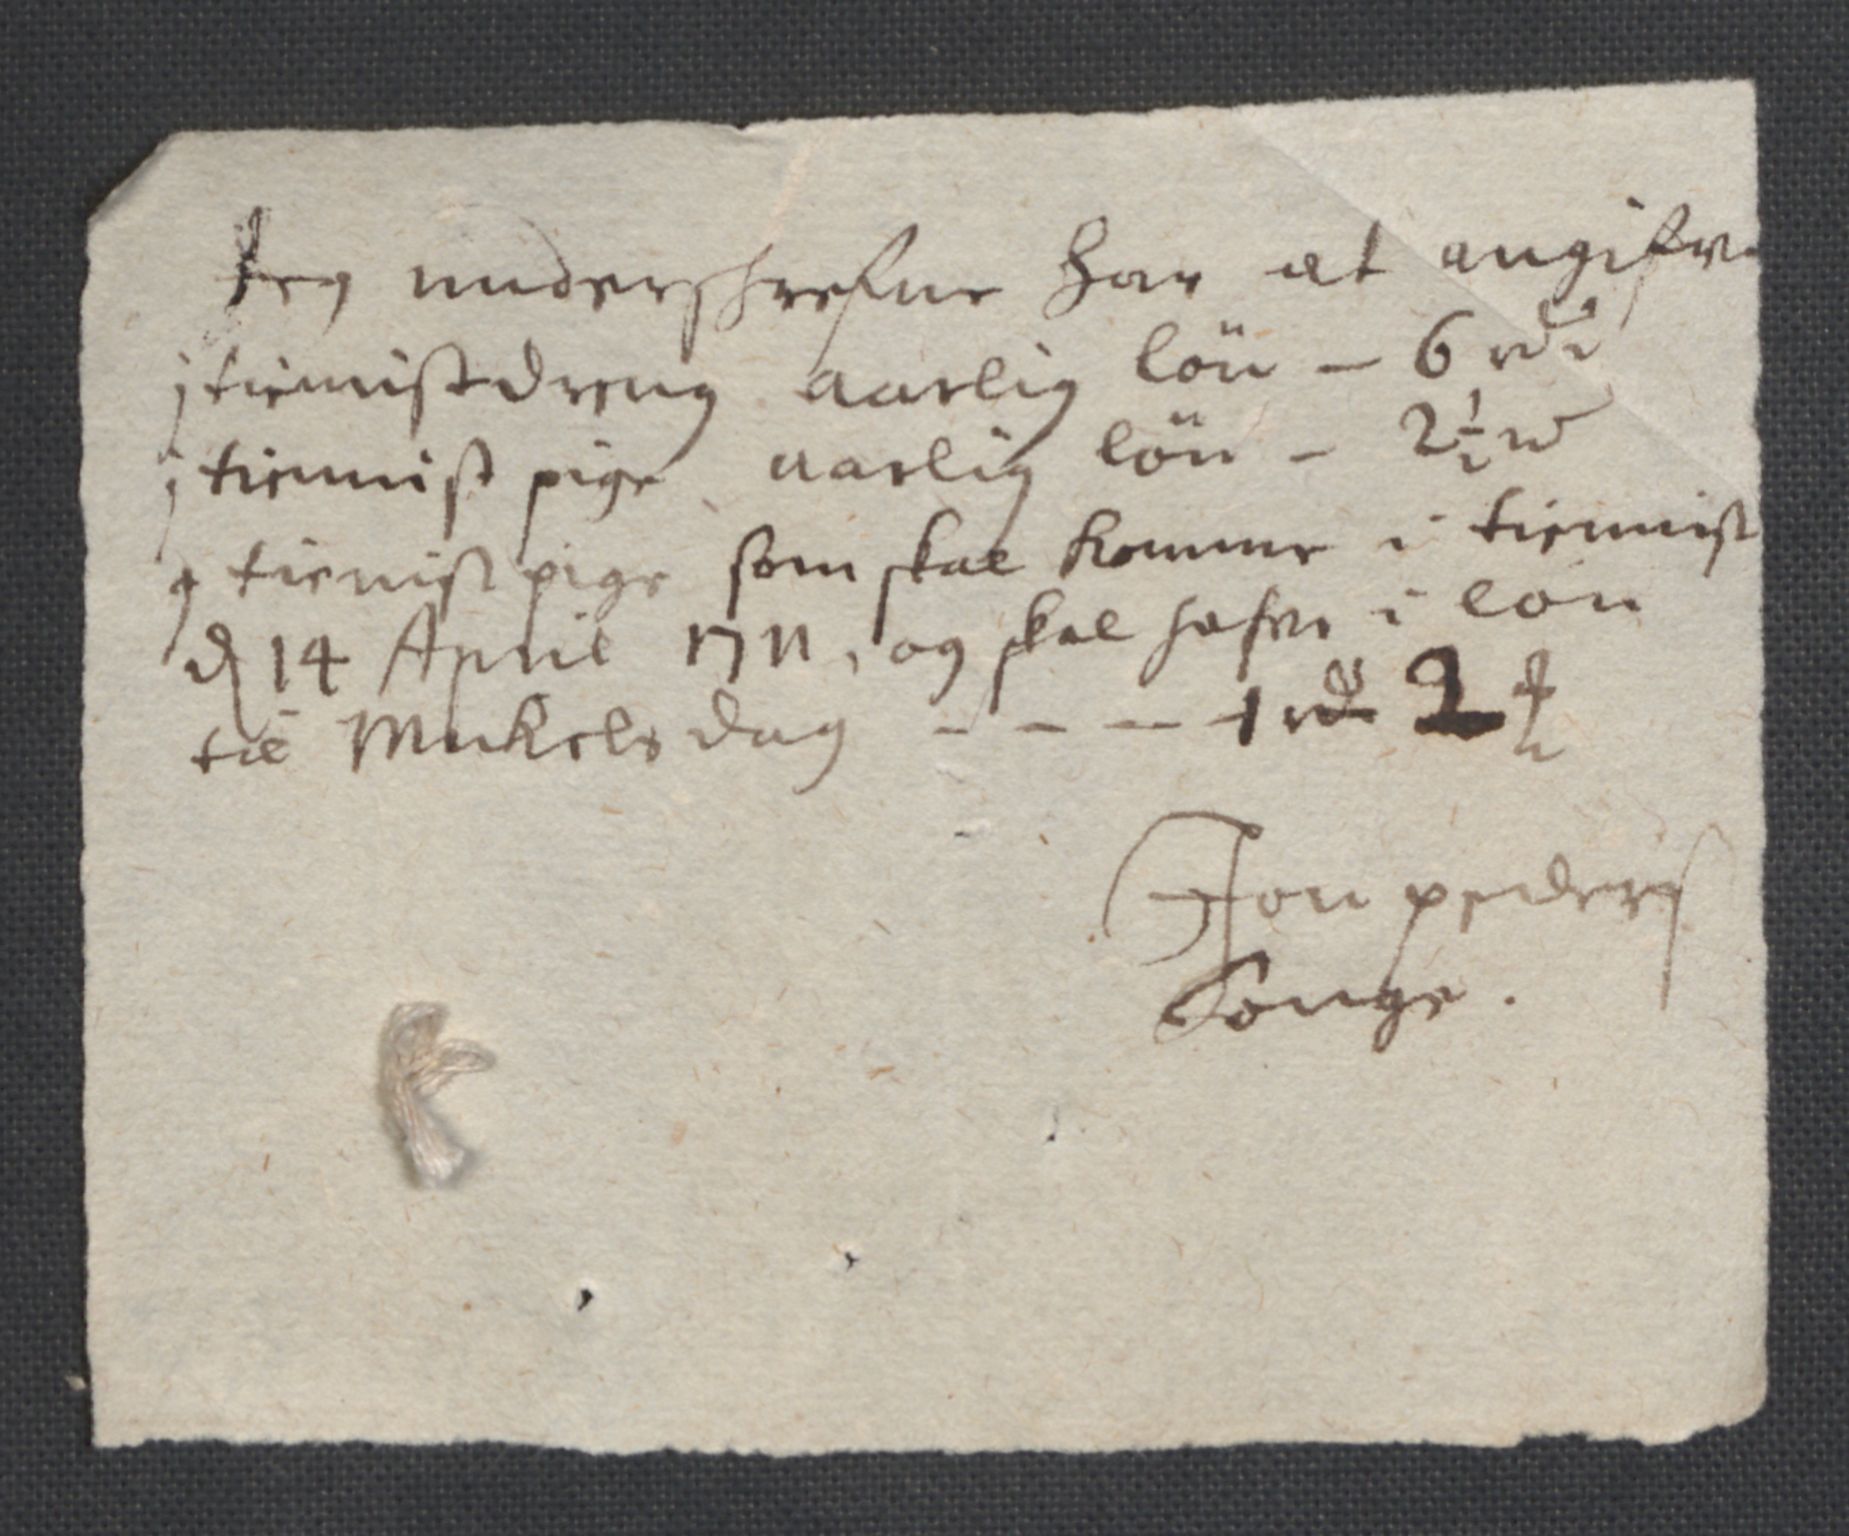 Jeg underskrefne Har at angifve
j tienistdreng aarlig lön - 6 rdr
j tiennist pige aarlig lön - 2½ rd
j tienist pige som skal komme i tiennist
d 14 April 1711, og skal hafve i lön
til Mickelsdag - - - - 1 rd 2
Jon peders
Songe.